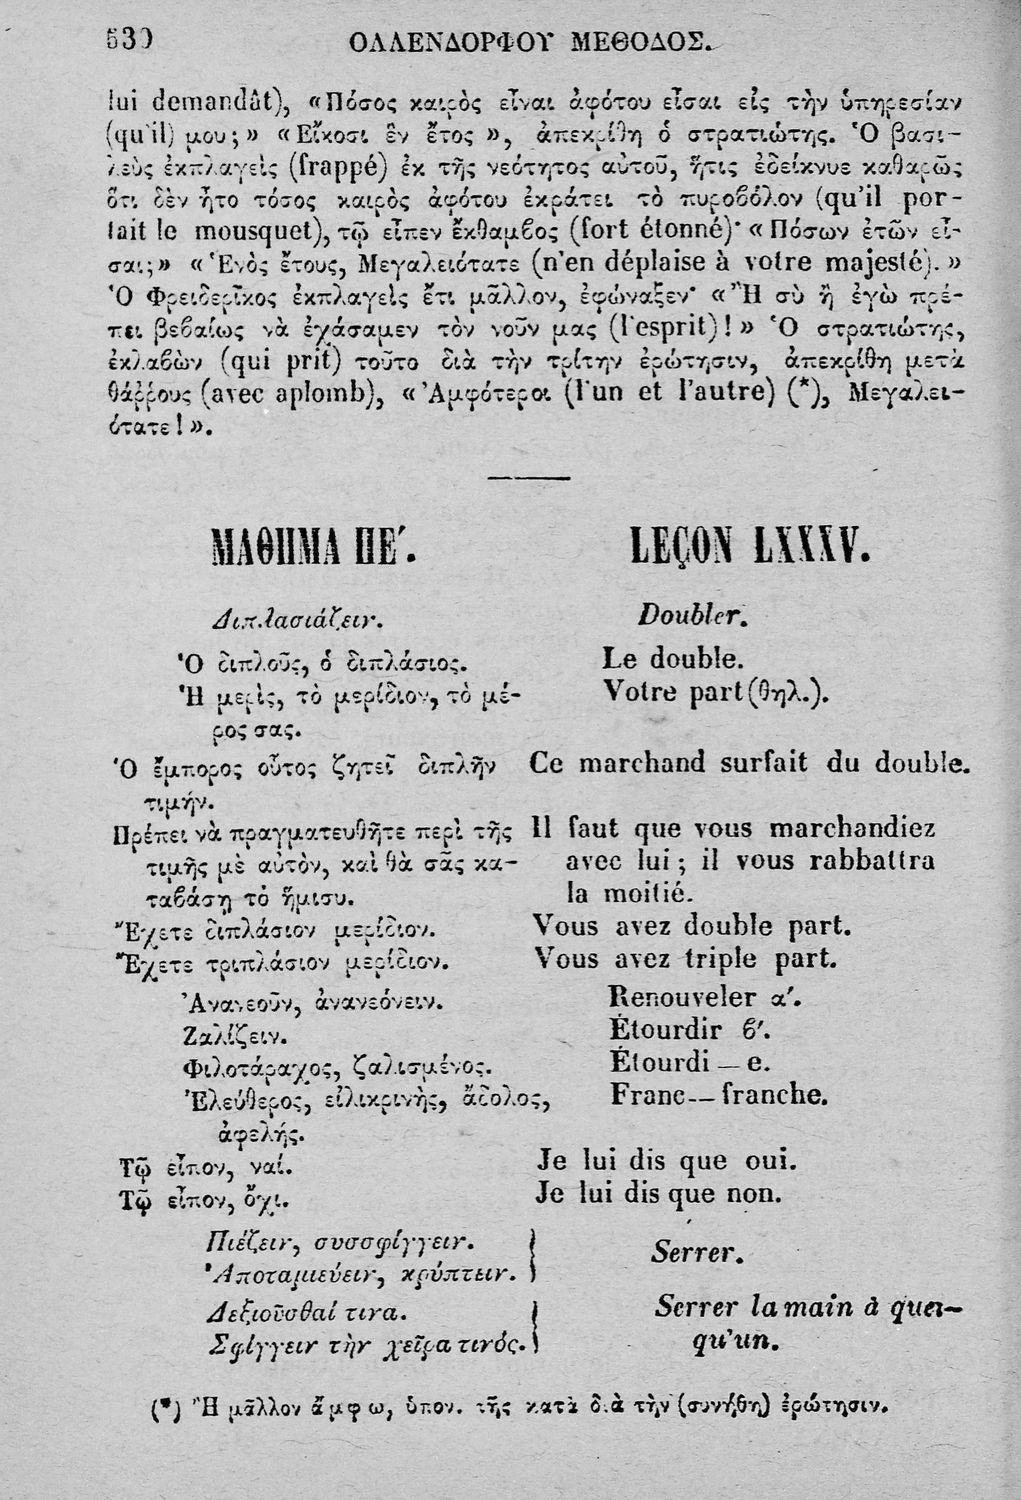 530 ΟΛΛΕΝΔΟΡΦΟΥ ΜΕΘΟΔΟΣ.
lui demandât), «Πόσος καιρὸς εἶναι ἀφότου εἶσαι εἰς τὴν ὑπηρεσίαν
(qu'il) μου;» «Εἴκοσι ἓν ἔτος», ἀπεκρίθη ὁ στρατιώτης. Ὁ βασι-
λεὺς ἐκπλαγεὶς (frappé) ἐκ τῆς νεότητος αὐτοῦ, ἥτις ἐδείκνυε καθαρῶς
ὅτι δὲν ἦτο τόσος καιρὸς ἀφότου ἐκράτει τὸ πυροβόλον (qu'il por-
tait le mousquet), τῷ εἶπεν ἔκθαμβος (fort étonné)· «Πόσων ἐτῶν εἶ-
σαι;» «Ἑνὸς ἔτους, Μεγαλειότατε (n'en déplaise à votre majesté).»
Ὁ Φρειδερῖκος ἐκπλαγεὶς ἔτι μᾶλλον, ἐφώναξεν· «Ἢ σὺ ἢ ἐγὼ πρέ-
πει βεβαίως νὰ ἐχάσαμεν τὸν νοῦν μας (l'esprit)!» Ὁ στρατιώτης,
ἐκλαβὼν (qui prit) τοῦτο διὰ τὴν τρίτην ἐρώτησιν, ἀπεκρίθη μετὰ
θάῤῥους (avec aplomb), «Ἀμφότεροι (l'un et l'autre) (*), Μεγαλει-
ότατε!».
ΜΑΘΗΜΑ ΠΕ΄. LEÇON LXXXV.
Διπλασιάζειν. Doubler.
Ὁ διπλοῦς, ὁ διπλάσιος. Le double.
Ἡ μερὶς, τὸ μερίδιον, τὸ μέ- Votre part (θηλ.).
ρος σας.
Ὁ ἔμπορος οὗτος ζητεῖ διπλῆν Ce marchand surfait du double.
τιμήν.
Πρέπει νὰ πραγματευθῆτε περὶ τῆς Il faut que vous marchandiez
τιμῆς μὲ αὐτὸν, καὶ θὰ σᾶς κα- avec lui; il vous rabbattra
ταβάσῃ τὸ ἥμισυ. la moitié.
Ἔχετε διπλάσιον μερίδιον. Vous avez double part.
Ἔχετε τριπλάσιον μερίδιον. Vous avez triple part.
Ἀνανεοῦν, ἀνανεόνειν. Renouveler α΄.
Ζαλίζειν. Étourdir β΄.
Φιλοτάραχος, ζαλισμένος. Étourdi — e.
Ἐλεύθερος, εἰλικρινὴς, ἄδολος, Franc — franche.
ἀφελής.
Τῷ εἶπον, ναί. Je lui dis que oui.
Τῷ εἶπον, ὄχι. Je lui dis que non.
Πιέζειν, συσσφίγγειν. Serrer.
Ἀποταμιεύειν, κρύπτειν.
Δεξιοῦσθαί τινα. Serrer la main à quel-
Σφίγγειν τὴν χεῖρα τινός. qu'un.
(*) Ἢ μᾶλλον ἄμφω, ὑπον. τῆς κατὰ διὰ τὴν (συνήθη) ἐρώτησιν.